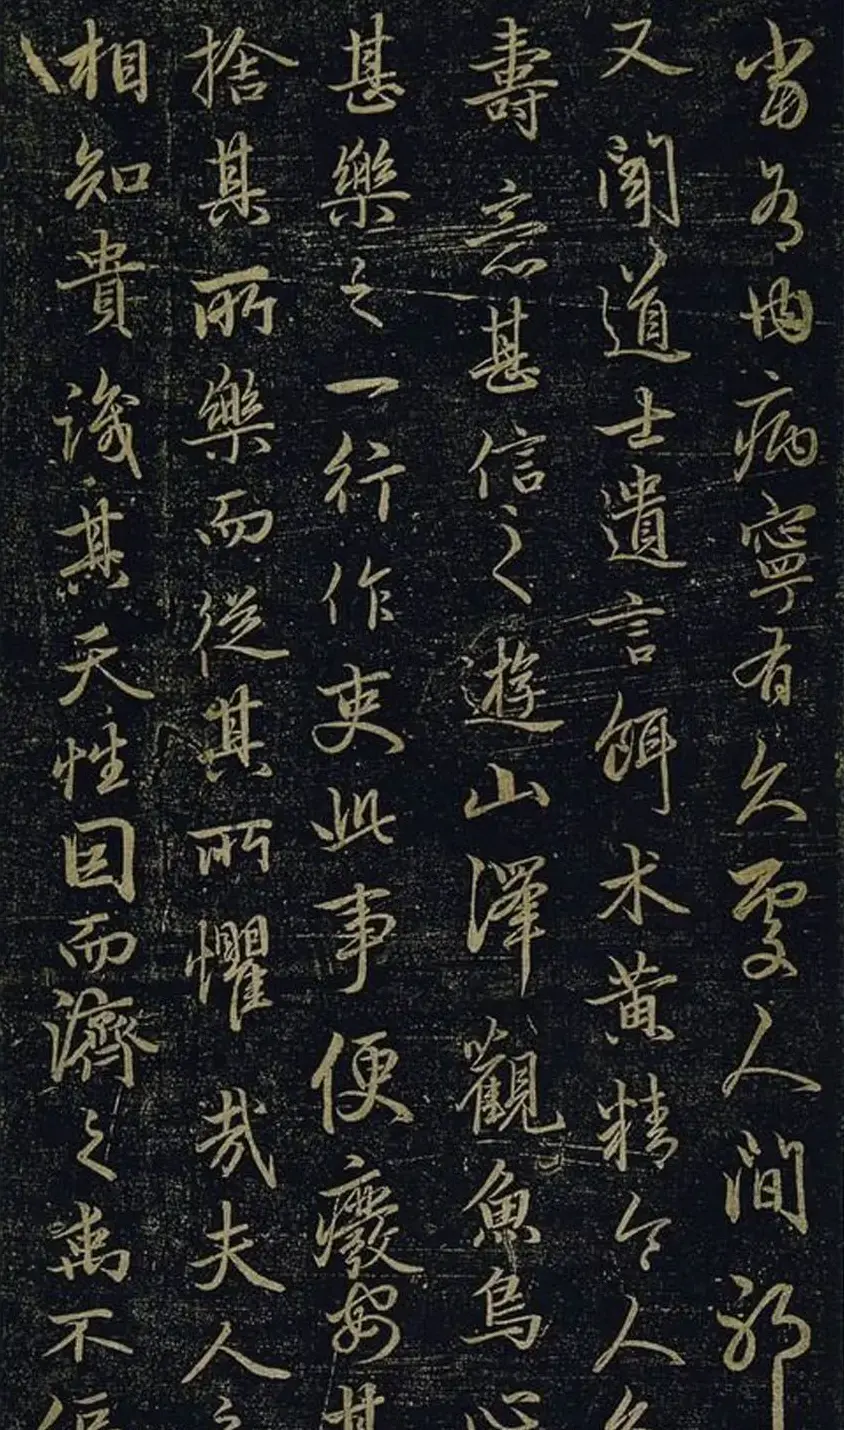 當內病寧有久處人間邪
又聞道士遺言餌术黃精令人久
壽意甚信之遊山澤觀魚鳥心
甚樂之一行作吏此事便廢安其
捨其所樂而從其所懼哉夫人之
相知貴識其天性因而濟之禹不偪